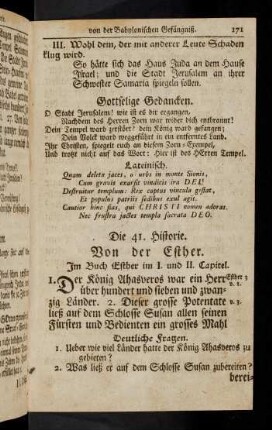 von der Babylonischen Gefängniß. 171
III. Wohl dem, der mit anderer Leute Schaden
klug wird.
So hätte sich das Hauß Juda an dem Hause
Israel; und die Stadt Jerusalem an ihrer
Schwester Samaria spiegeln sollen.
Gottselige Gedancken.
O Stadt Jerusalem! wie ist es dir ergangen,
Nachdem des HErren Zorn war wider dich entbrannt!
Dein Tempel ward zerstöhrt, dein König ward gefangen;
Dein Volck ward weggeführet in ein entferntes Land.
Ihr Christen, spiegelt euch an diesem Zorn-Exempel,
Und trotzt nicht auf das Wort: Hier ist des HErren Tempel.
Lateinisch.
Quam deleta jaces, o urbs in monte Sionis,
Cum gravis exarsit vindicis ira DEI!
Destruitur templum: Rex captus vincula gestat,
Et populus patriis sedibus exul agit.
Cautior hinc fias, qui CHRISTI nomen adoras.
Nec frustra jactes templa sacrata DEO.
Die 41. Historie.
Von der Esther.
Im Buch Esther im I. und II. Capitel.
1. Der König Ahasveros war ein Herr
über hundert und sieben und zwan-
zig Länder. 2. Dieser grosse Potentate
ließ auf dem Schlosse Susan allen seinen
Fürsten und Bedienten ein grosses Mahl
Deutliche Fragen.
1. Ueber wie viel Länder hatte der König Ahasveros zu
gebieten?
2. Was ließ er auf dem Schlosse Susan zubereiten?
berei-